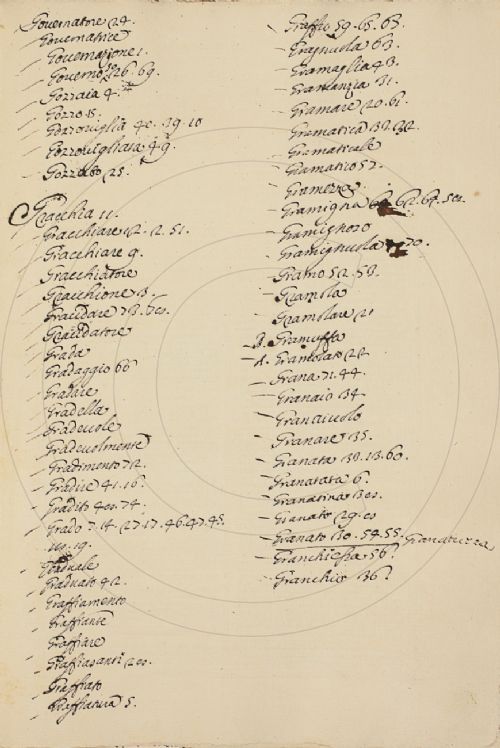 Governatore 24.
Governatrice
Governazione 1.
Governo 26. 69.
Gozzaia 4.
Gozzo 15.
Gozzoviglia 40. 19. 10
Gozzovigliata 49.
Gozzuto 25.
Gracchia 11.
Gracchiare 12. 2. 51.
Gracchiare 9.
Gracchiatore
Gracchione 3.
Gracidare
Gracidatore
Grada
Gradaggio 60
Gradare
Gradella
Gradevole
Gradevolmente
Gradimento 72.
Gradire 41. 16.
Gradito 74.
Grado 7. 14. 27. 17. 46. 47. 45.
19.
Graduale
Graduato 42.
Graffiamento
Graffiante
Graffiare
Graffiasanti
Graffiato
Graffiatura 5.
Graffio 59. 65. 63.
Gragnuola 63.
Gramaglia 43.
Gramanzia 31.
Gramare 20. 61.
Gramatica
Gramaticale
Gramatico 57.
Gramezza
Gramigna 62. 64.
Gramignoso
Gramignuola 70.
Gramo 52. 53.
Gramola
Gramolare 21
3. Gramuffa
1. Gramolato 22
Grana 71. 44.
Granaio 34
Granaiuolo
Granare 35.
Granata 38. 13. 60.
Granatata 6.
Granatina
Granato 29.
Granato 30. 54. 55. Granatuzza
Granchiessa 56.
Granchio 36.